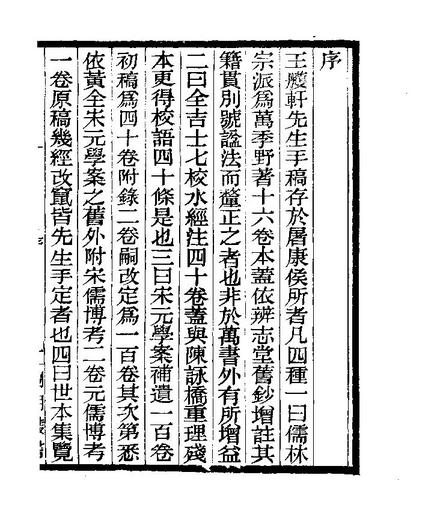 序
王艧軒先生手稿存於屠康侯所者凡四種一曰儒林
宗派爲萬季野著十六卷本蓋依辨志堂舊鈔增註其
籍貫別號諡法而釐正之者也非於萬書外有所增益
二曰全吉士七校水經注四十卷蓋與陳詠橋重理殘
本更得校語四十條是也三曰宋元學案補遺一百卷
初稿爲四十卷附錄二卷嗣改定爲一百卷其次第悉
依黃全宋元學案之舊外附宋儒博考二卷元儒博考
一卷原稿幾經改竄皆先生手定者也四曰世本集覽